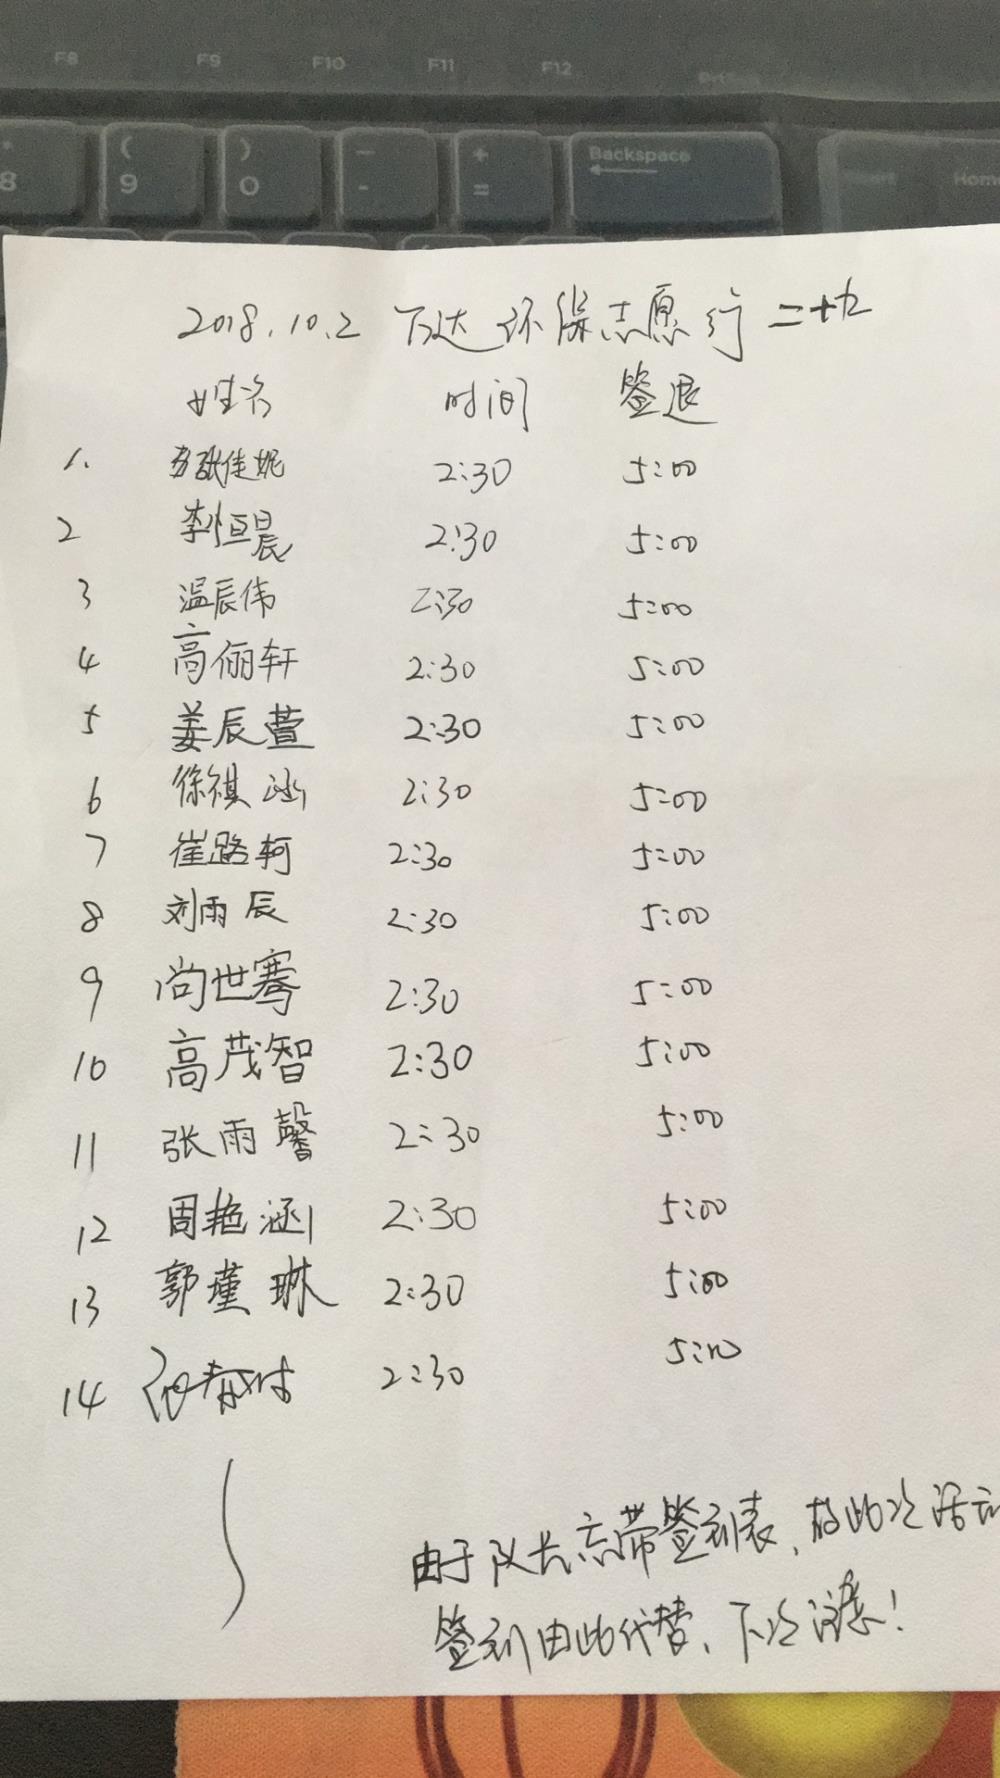 F8 F9 F10 F11 F12
* 8 ( 9 ) 0 — - + = Backspace Home
2018.10.2 万达环保志愿行二十九
姓名 时间 签退
1. 张佳妮 2:30 5:00
2 李恒晨 2:30 5:00
3 温辰伟 2:30 5:00
4 高俪轩 2:30 5:00
5 姜辰萱 2:30 5:00
6 徐祺涵 2:30 5:00
7 崔路轲 2:30 5:00
8 刘雨辰 2:30 5:00
9 尚世骞 2:30 5:00
10 高茂智 2:30 5:00
11 张雨馨 2:30 5:00
12 周艳涵 2:30 5:00
13 郭瑾琳 2:30 5:00
14 2:30 5:00
由于队长忘带签到表,故此次活动
签到由此代替、下次注意!